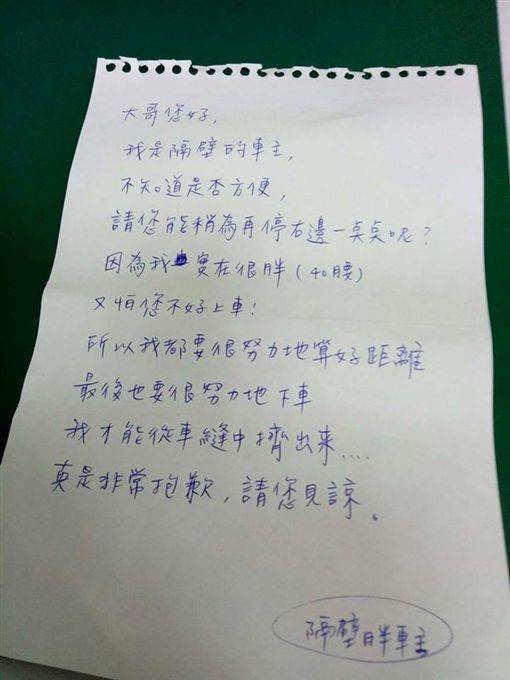 大哥您好,
我是隔壁的車主,
不知道是否方便,
請您能稍為再停右邊一奌奌呢?
因為我實在很胖(40腰)
又怕您不好上車!
所以我都要很努力地算好距離
最後也要很努力地下車
我才能從車縫中擠出来....
真是非常抱歉,請您見諒。
隔壁胖車主